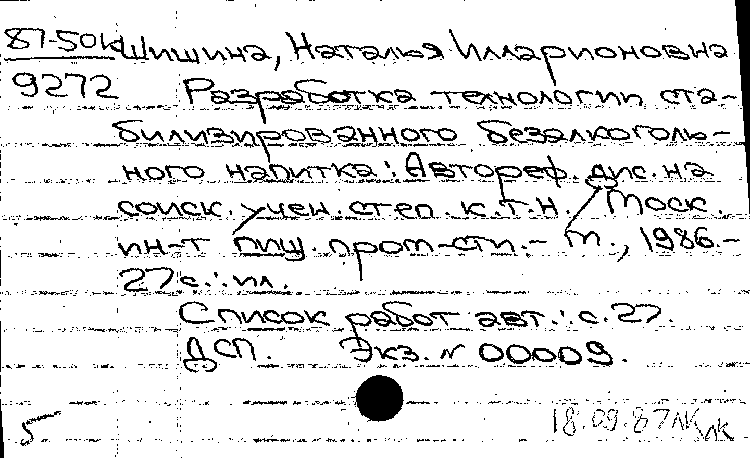 87-50к Шишина, Наталья Илларионовна
9272 Разработка технологии ста-
билизированного безалкоголь-
ного напитка: Автореф. дис. на
соиск. учен. степ. к.т.н. / Моск.
ин-т пищ. пром-сти. - М., 1986.-
27 с.: ил.
Список работ авт.: с. 27.
ДСП. Экз. N 00009.
5 18.09.87